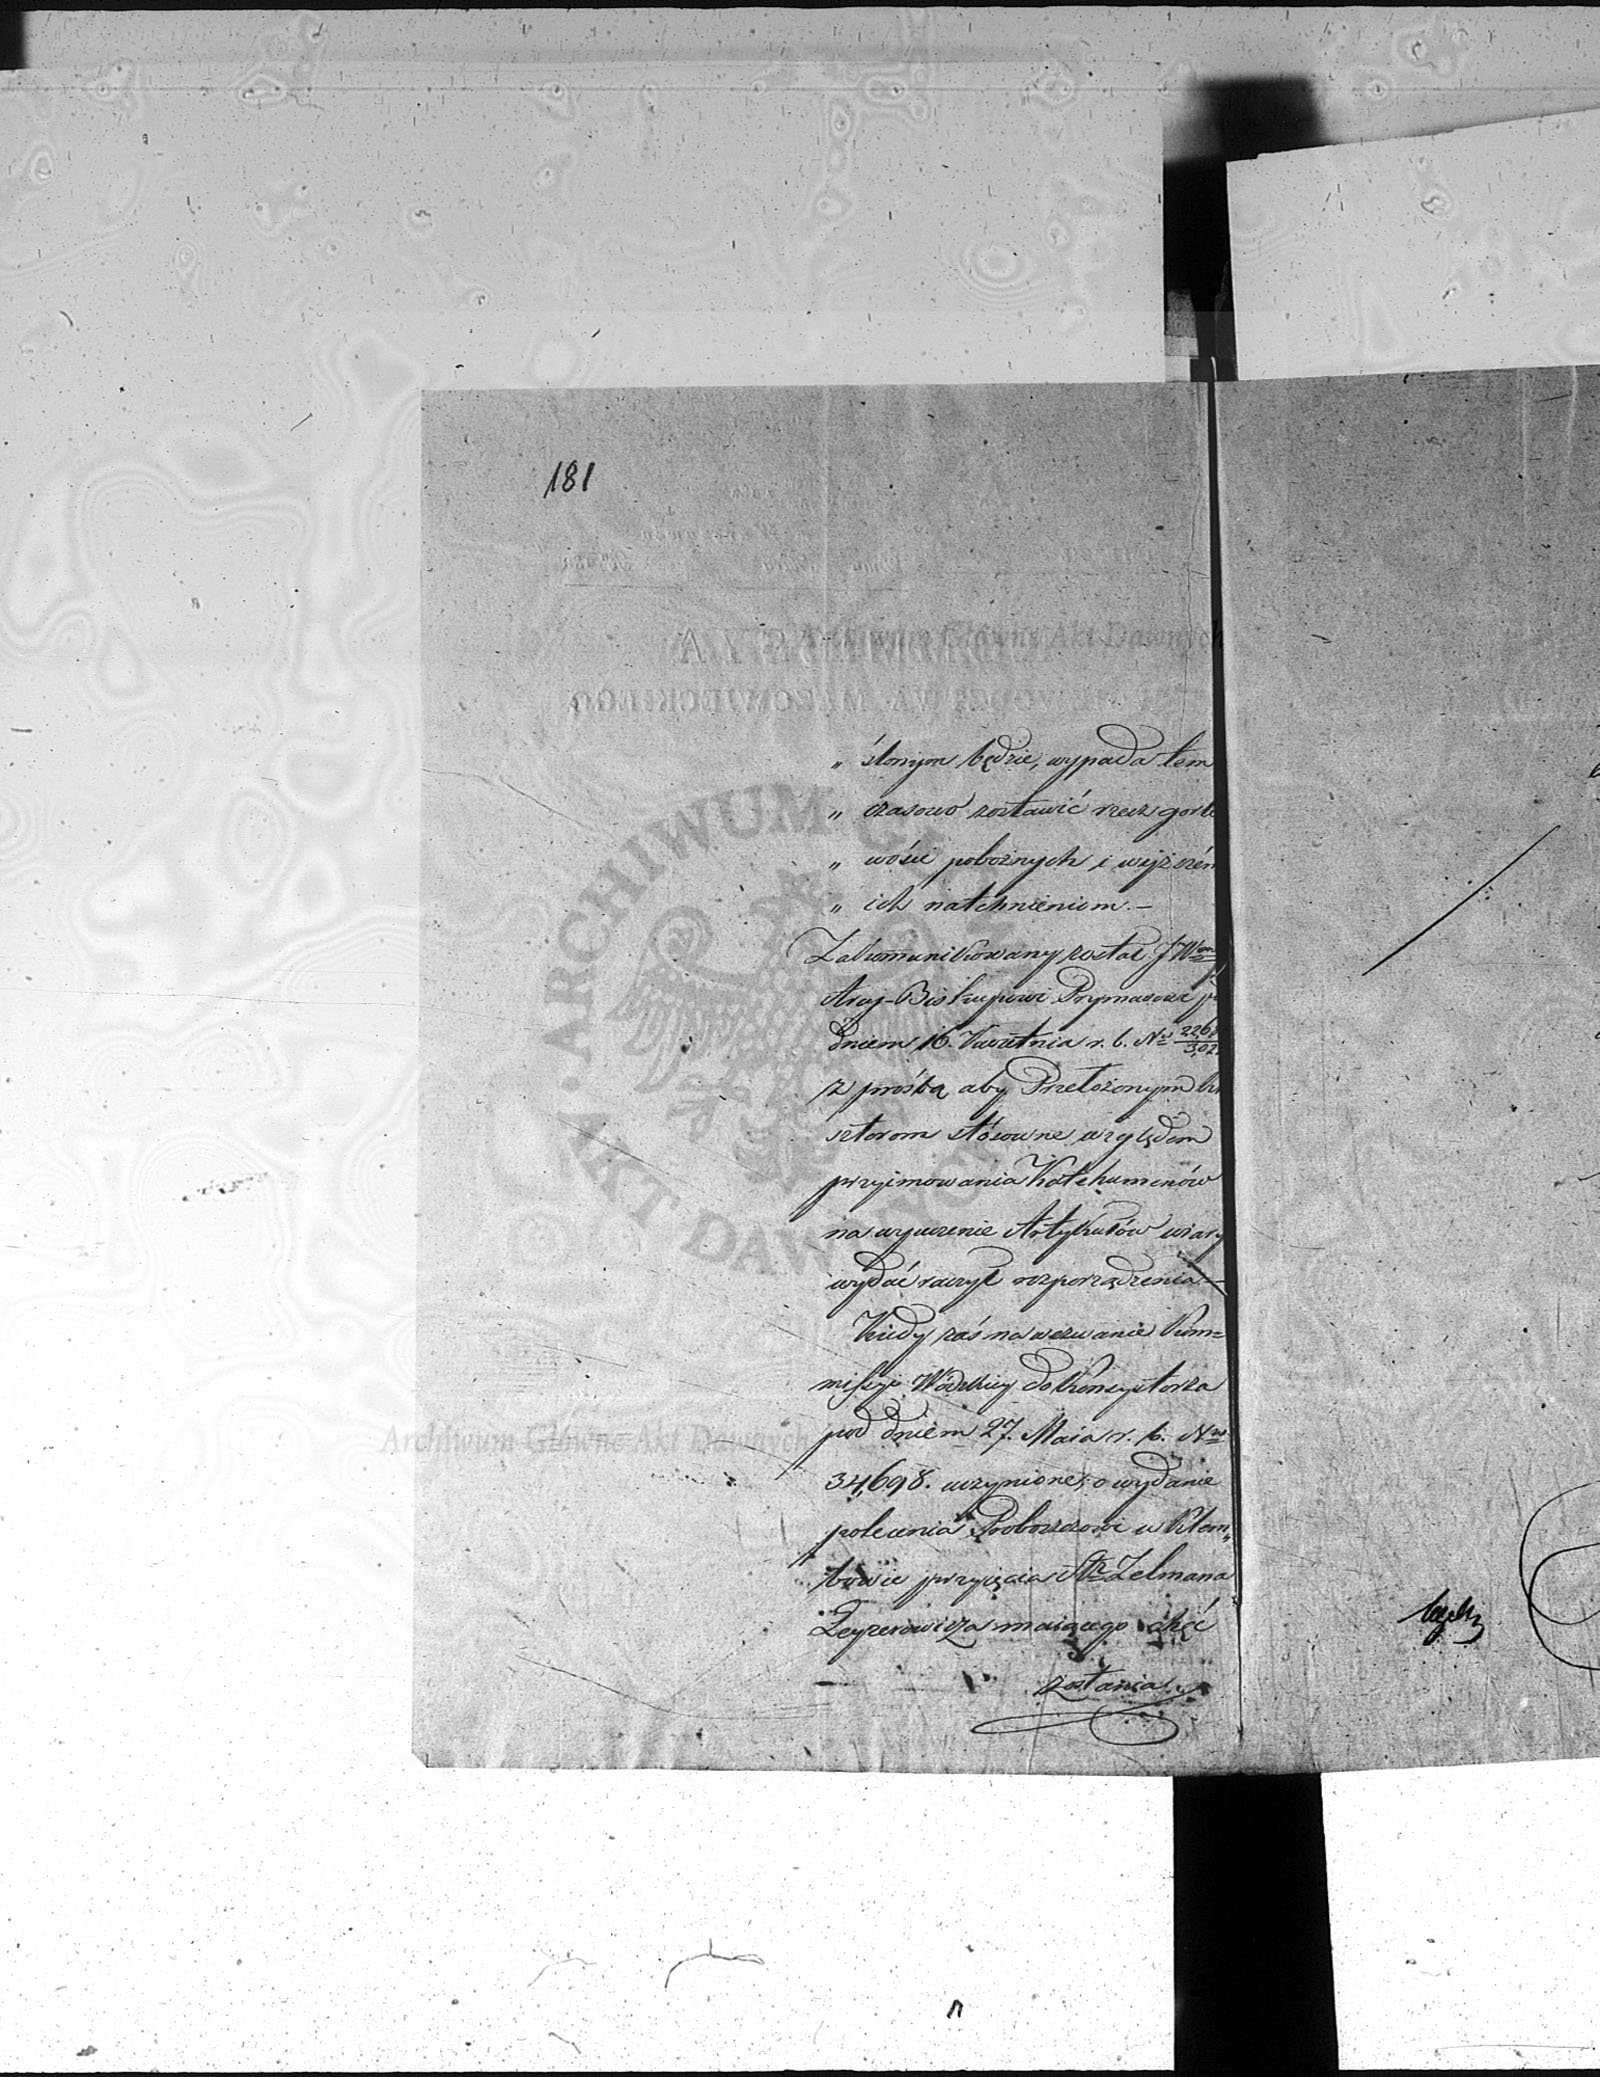 181
„ ślonym będzie, wypada tem
„ czasowo zostawić rzecz gorli
„ wości pobożnych i wyższém
„ ich natchnieniom.—
Zakomunikowany został JW
Arcy-Biskupowi Prymasowi
dniem 16. Kwietnia r. b. Nr 226
z prośbą aby Przełożonym
sztorom stósowne względem
przyimowania Katehumenów
na wyuczenie Artykułów wiary
wydać raczył rozporządzenia.—
Kiedy zaś na wezwanie Kom=
missyi Wdzkiey do Konsystorza
pod dniem 27. Maia r. b. Nr
34,698. uczynione, o wydanie
polecenia Proboszczowi w Klem„
bowie przyięcia Str Zelmana
Zeyzerowicza maiącego chęć
zostania
ARCHIWUM GŁÓWNE AKT DAWNYCH
Archiwum Główne Akt Dawnych
Archiwum Główne Akt Dawnych